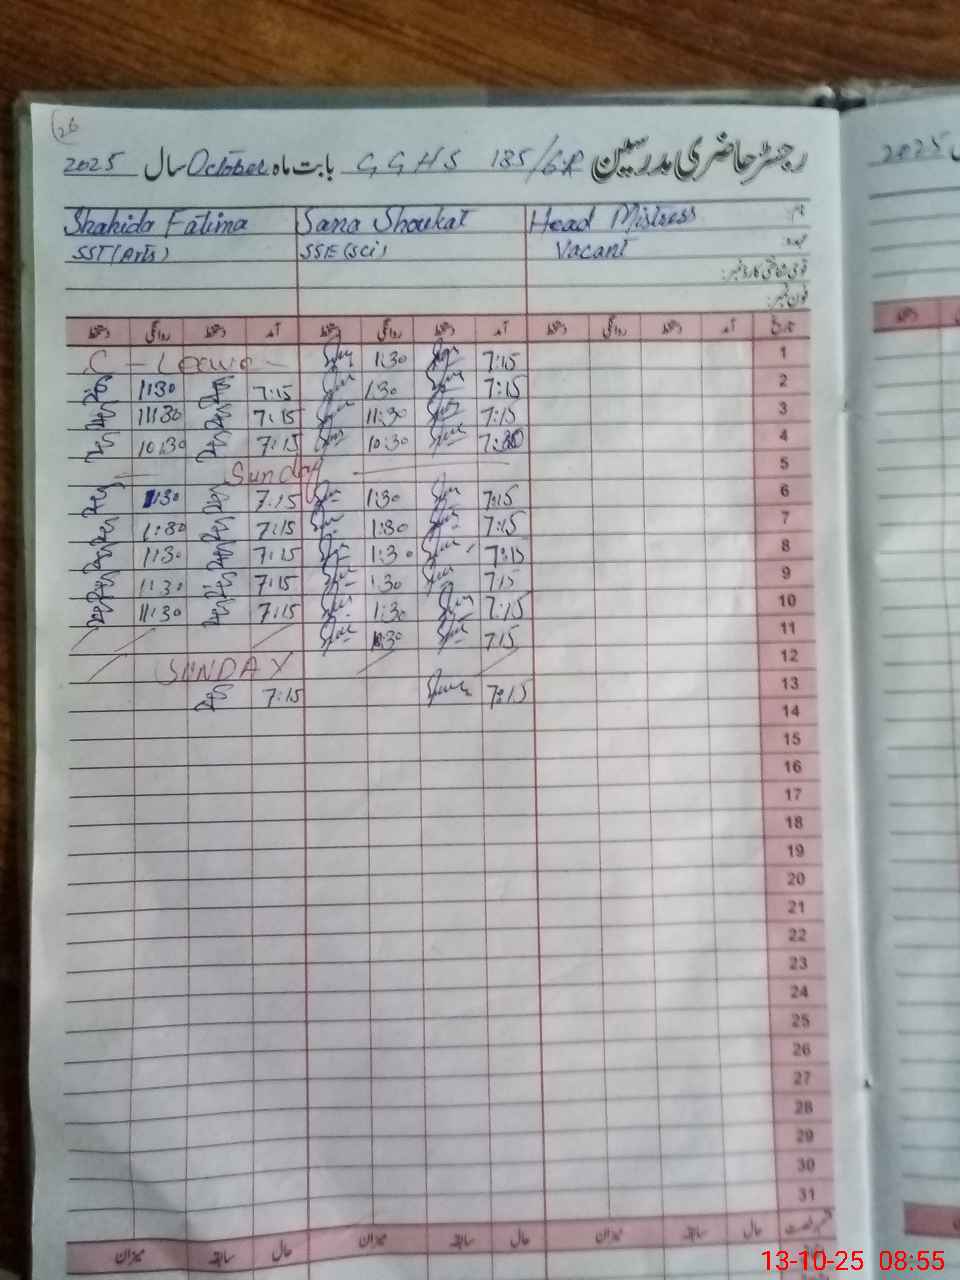 26
رجسٹر حاضری مدرسین GGHS 185/GR بابت ماہ October سال 2025
2025
Head Mistress Sana Shoukat Shahida Fatima
Vacant SSE(Sci) SST(Arts)
قومی شناختی کارڈ نمبر:
فون نمبر:
تاریخ آمد دستخط روانگی دستخط آمد دستخط روانگی دستخط آمد دستخط روانگی دستخط
1 7:15 1:30 C - Leave -
2 7:15 1:30 7:15 1:30
3 7:15 11:30 7:15 11:30
4 10:30 7:15 10:30
5 Sunday
6 7:15 1:30 7:15 1:30
7 7:15 1:30 7:15 1:30
8 7:15 1:30 7:15 1:30
9 7:15 1:30 7:15 1:30
10 7:15 1:30 7:15 11:30
11 7:15
12 SUNDAY
13 7:15 7:15
14
15
16
17
18
19
20
21
22
23
24
25
26
27
28
29
30
31
حال سابقہ میزان حال سابقہ میزان حال سابقہ میزان
13-10-25 08:55